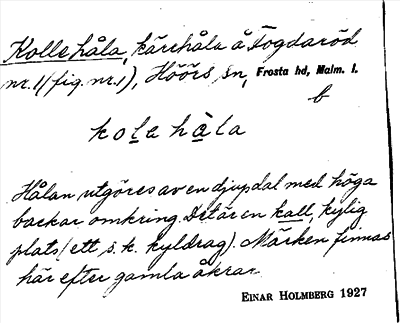 Kolle håla, kärrhåla å Togdaröd
nr. 1 (fig. nr. 1), Höörs sn, Frosta hd, Malm. l.
b
kolahàla
Hålan utgöres av en djup dal med höga
backar omkring. Det är en kall, kylig
plats (ett s. k. kyldrag). Märken finnas
här efter gamla åkrar.
EINAR HOLMBERG 1927